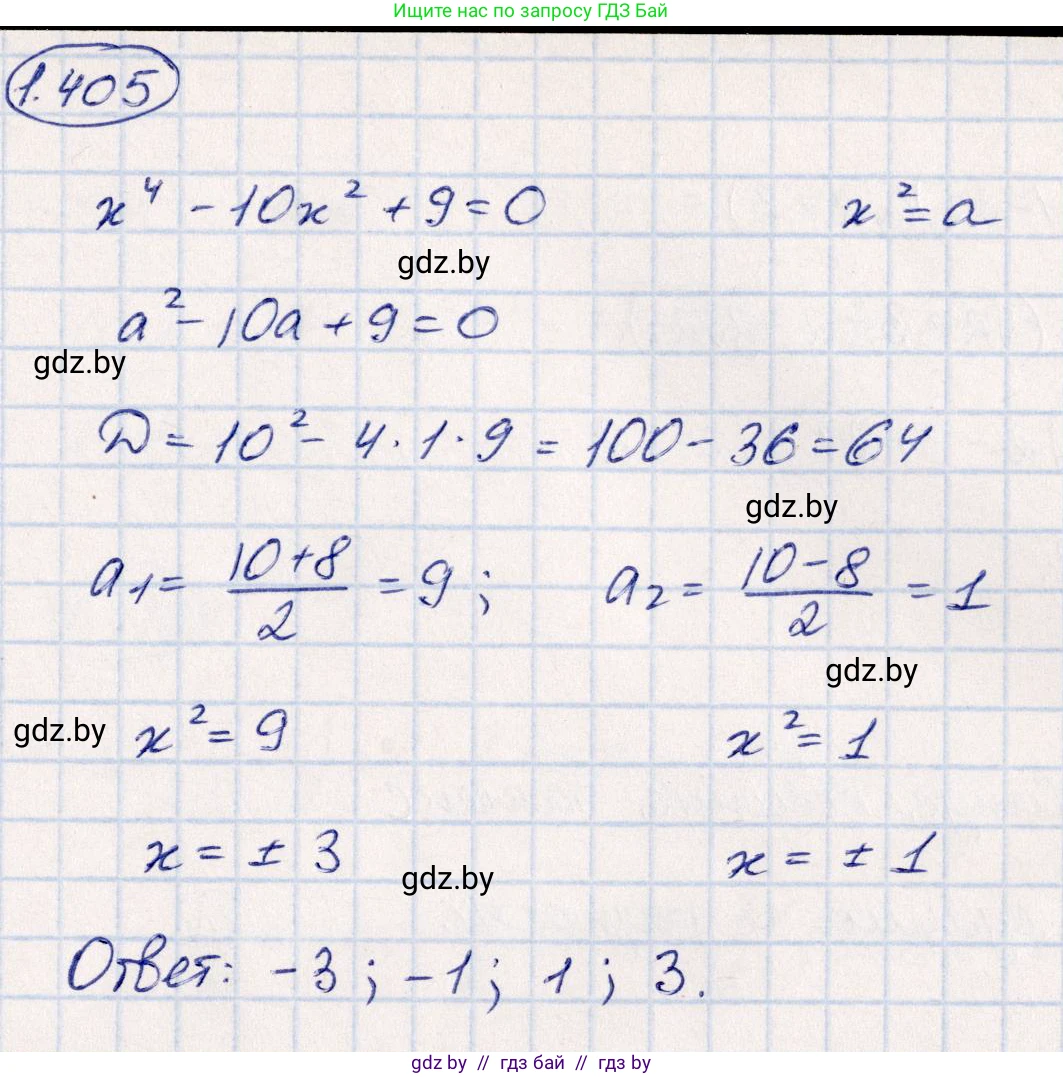 Ищите нас по запросу ГДЗ Бай
1.405
x⁴ - 10x² + 9 = 0 x² = a
gdz.by
a² - 10a + 9 = 0
gdz.by
D = 10² - 4 · 1 · 9 = 100 - 36 = 64
gdz.by
a₁ = (10+8)/2 = 9 ; a₂ = (10-8)/2 = 1
gdz.by
gdz.by x² = 9 x² = 1
x = ± 3 x = ± 1
gdz.by
Ответ: -3 ; -1 ; 1 ; 3.
gdz.by // гдз бай // гдз by